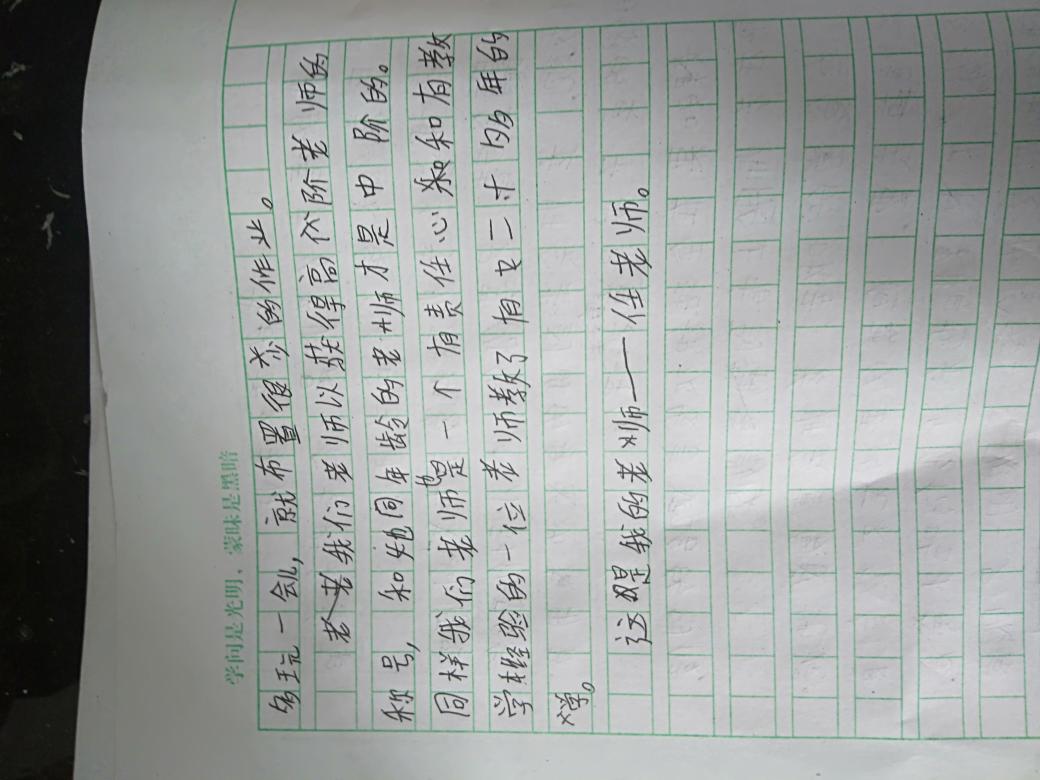 学问是光明，蒙昧是黑暗
多玩一会儿，就布置很少的作业。
我们老师以获得高阶老师的
称号，和她同年龄的老师才是中阶的。
同样我们老师也是一个有责任心和有教
学经验的一位老师教了有七二十多年的
学。
这就是我的老师——任老师。